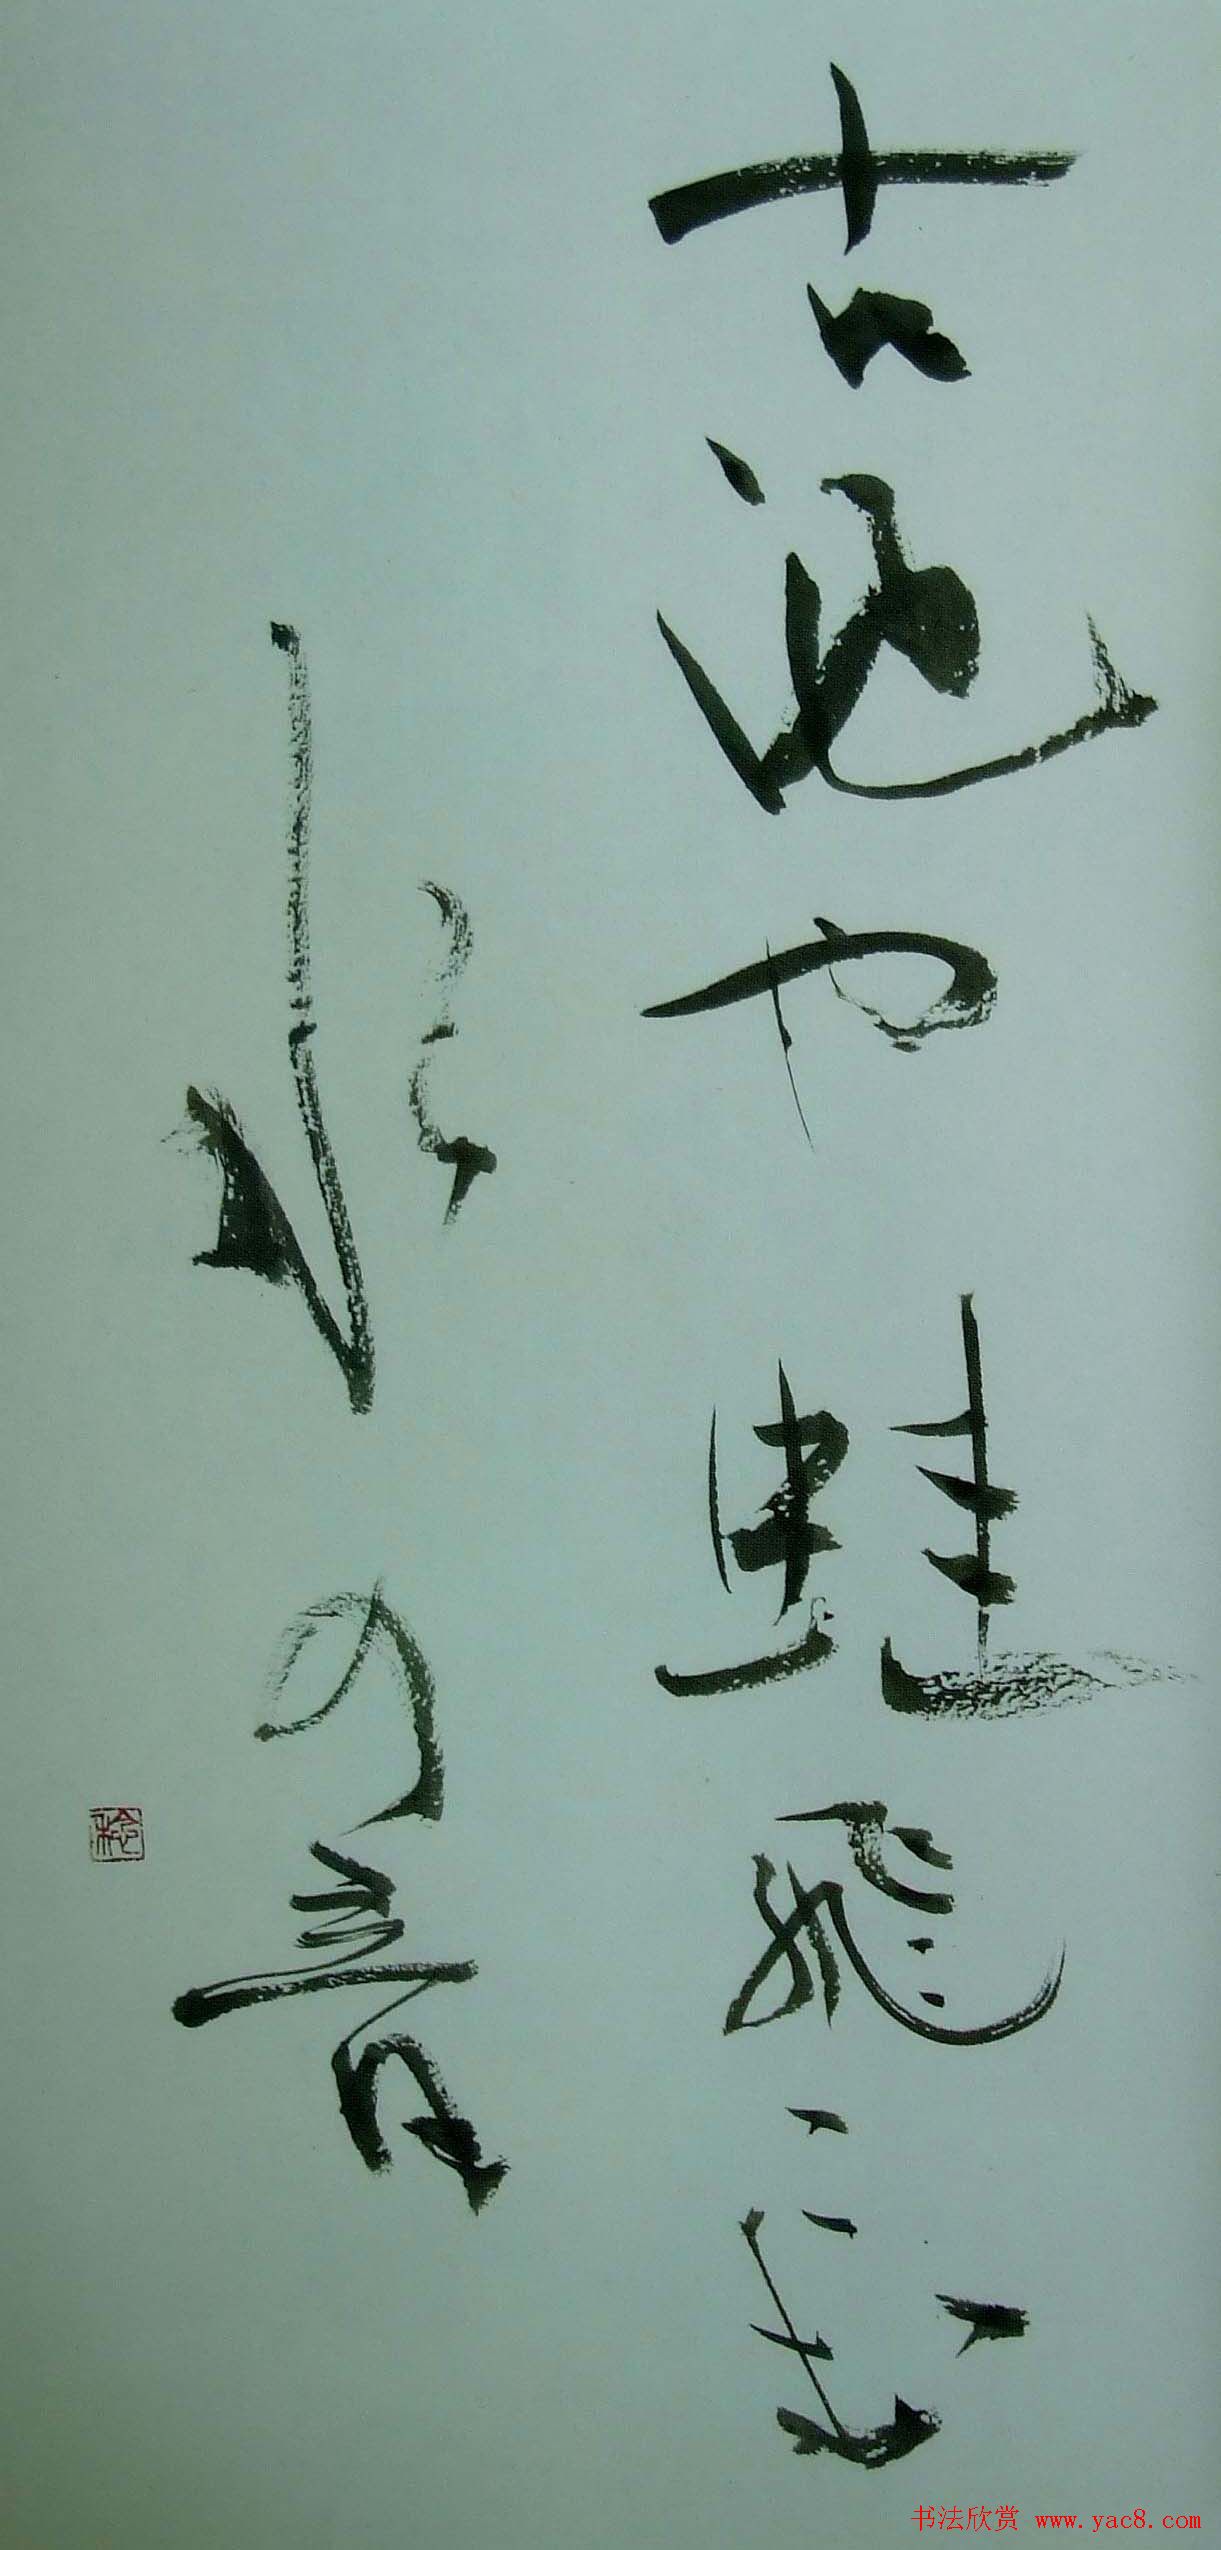 古池や蛙飛こむ
水の音
书法欣赏 www.yac8.com